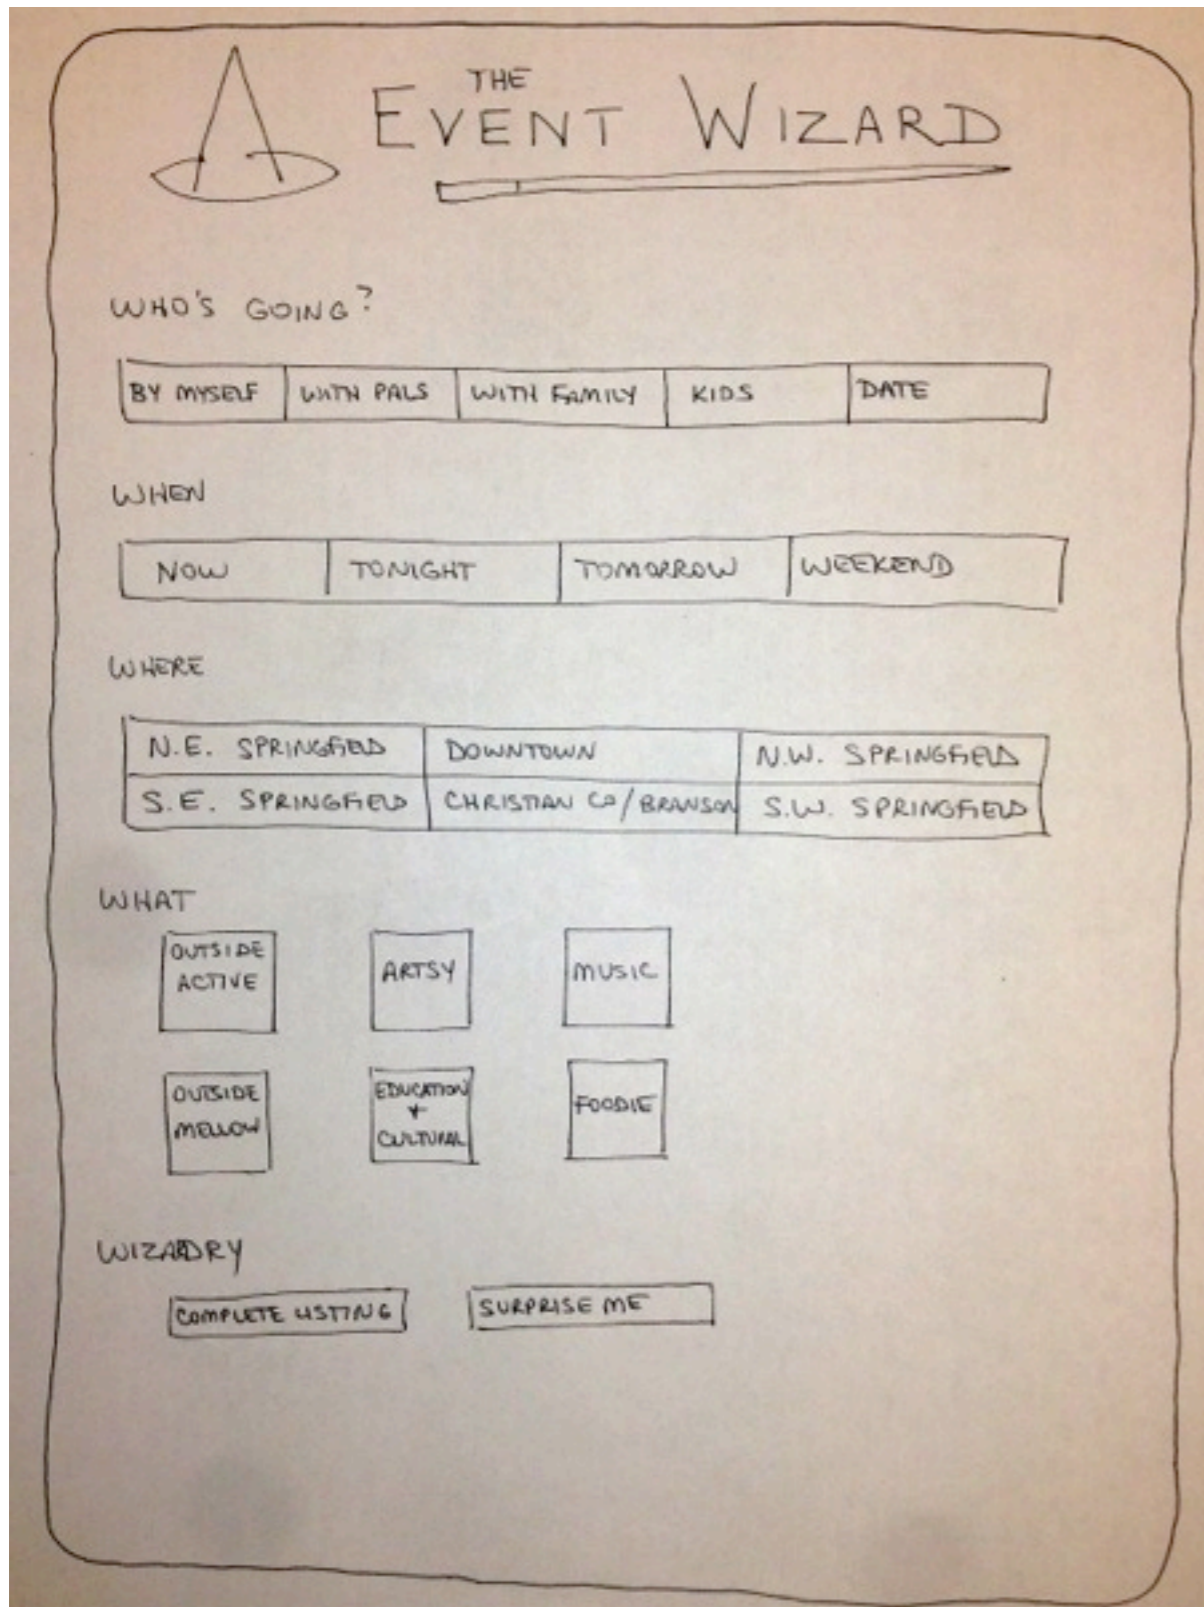 THE
EVENT WIZARD
WHO'S GOING?
BY MYSELF WITH PALS WITH FAMILY KIDS DATE
WHEN
NOW TONIGHT TOMORROW WEEKEND
WHERE
N.E. SPRINGFIELD DOWNTOWN N.W. SPRINGFIELD
S.E. SPRINGFIELD CHRISTIAN CO/BRANSON S.W. SPRINGFIELD
WHAT
OUTSIDE
ACTIVE
ARTSY
MUSIC
OUTSIDE
MELLOW
EDUCATION
+
CULTURAL
FOODIE
WIZARDRY
COMPLETE LISTING SURPRISE ME